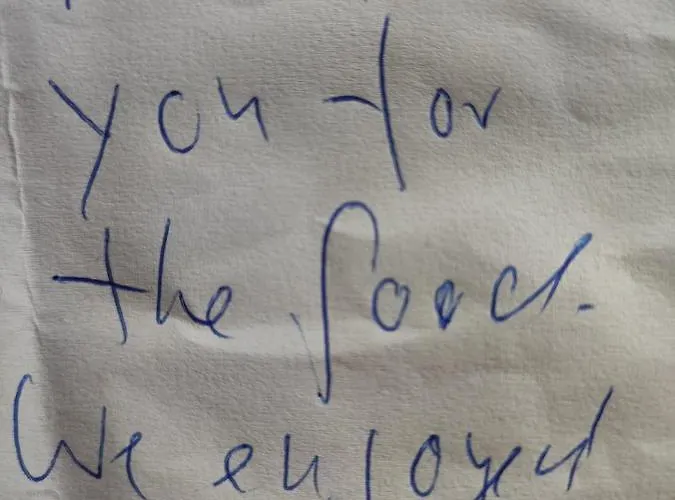 you for
the food.
We enjoyed